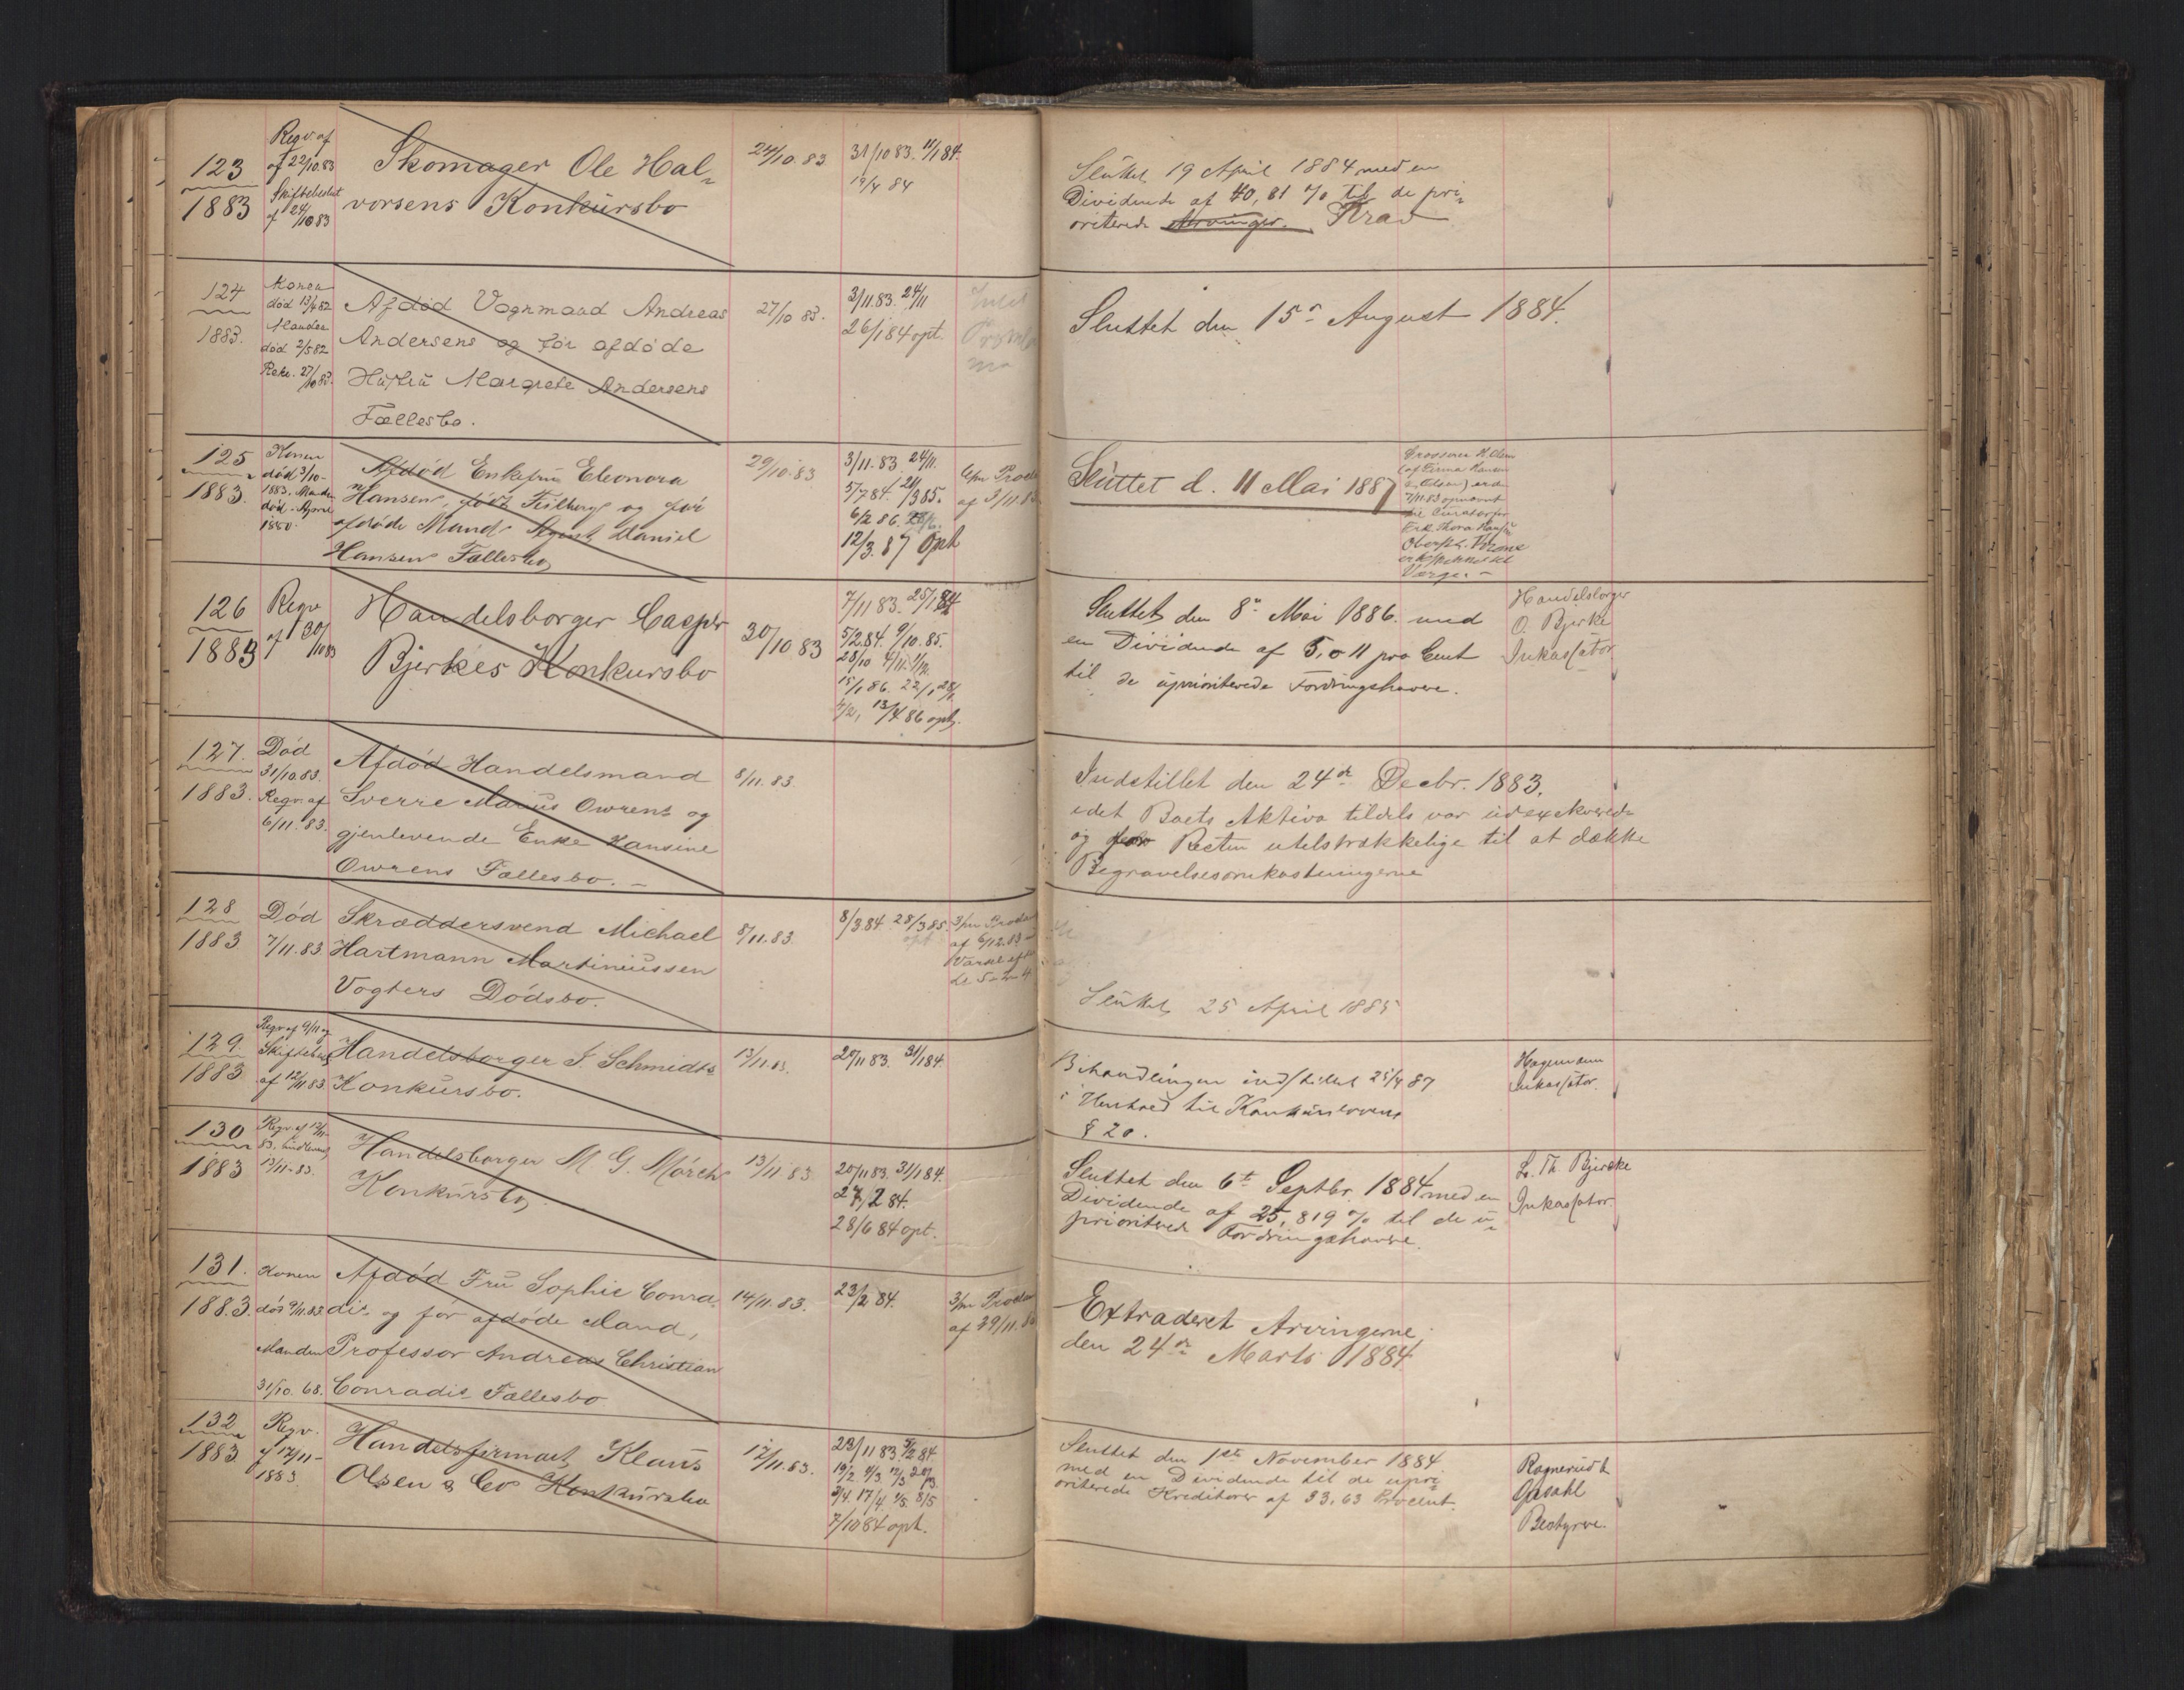 123
1883
Reqv af
af 22/10.83
Skiftebeslut
af 24/10 83
Skomager Ole Hal-
vorsens Konkursbo
24/10.83
31/10 83. 11/1 84.
19/4 84
Sluttet 19 April 1884 med en
Dividende af 40,81 % til de pri-
oriterede Arvinger. Krav
124
1883.
Konen
død 13/4 82
Manden
død 2/5 82
Rekv. 27/10 83.
Afdød Vognmand Andreas
Andersens og før afdøde
Hustru Margrete Andersens
Fællesbo.
27/10 83.
3/11.83. 24/11
26/1 84 opt.
Sluttet den 15de August 1884.
125
1883.
Konen
død 3/10-
1883. Manden
død
1850
Afdød Enkefru Eleonora
Hansen, født og før
afdøde Mand Agent Daniel
Hansens Fællesbo
29/10.83
3/11.83. 24/11.
5/7 84. 21/3 85.
6/2 86.
12/3.87 opt
af 3/11.83
Sluttet d. 11 Mai 1887
Grosserer H. Olsen
(af Firma Hansen
& Olsen) er den
7/11.83 opnævnt
til Curator for
Frk. Thora Hansen
Værge. -
126
1883
Reqv
af 30/10 83
Handelsborger Casper
Bjerkes Konkursbo
30/10 83
7/11 83. 25/1 84
5/2.84. 9/10.85.
28/10 4/11.
15/1 86. 22/1 28/1
4/2, 13/4 86 opt.
Sluttet den 8de Mai 1886. med
en Dividende af 5,011 pro Cent
til de uprioriterede Fordringshavere.
Handelsborger
O. Bjerke
Inkassator
127.
1883.
Død
31/10.83.
Reqv. af
6/11.83.
Afdød Handelsmand
Sverre Marius Owrens og
gjenlevende Enke Hansine
Owrens Fællesbo. -
8/11.83
Indstillet den 24de Decbr. 1883.
idet Boets Aktiva tildels var udexekverede
og Resten utilstrækkelige til at dække
Begravelsesomkostningerne
128
1883
Død
7/11.83
Skræddersvend Michael
Hartmann Martiniussen
Vogters Dødsbo.
8/11.83.
8/3.84. 28/3 85.
opt
af 6/12.83
Sluttet 25 April 1885
129.
1883
Reqv af 9/11 og
Skiftebesl
af 12/11 83
Handelsborger J. Schmidts
Konkursbo.
13/11.83.
20/11 83. 31/1 84.
Behandlingen indstillet 25/4 87
i Henhold til Konkurslovens
§ 20.
Hagemann
Inkassator.
130
1883
Reqv. af 12/11-
83. indlevert
13/11-83.
Handelsborger M G. Mørchs
Konkursbo
13/11 83
20/11 83. 31/1 84.
27/2 84.
28/6 84 opt.
Sluttet den 6te Septbr. 1884 med en
Dividende af 25,819 % til de u-
prioriterede Fordringshavere.
L. Th. Bjercke
Inkassator.
131.
1883.
Konen
død 9/11.83
Manden
31/10.68.
Afdød Fru Sophie Conra-
dis og før afdøde Mand,
Professor Andreas Christian
Conradis Fællesbo
14/11.83.
23/2 84.
af 29/11.83
Extraderet Arvingerne,
den 24de Marts 1884
132
1883
Reqv.
af 17/11-
1883.
Handelsfirmaet Klaus
Olsen & Co Konkursbo
17/11.83.
23/11 83. 5/2 84.
19/2. 4/3 12/3 20/3.
3/4. 17/4 1/5. 8/5
7/10 84 opt.
Sluttet den 1ste November 1884
med en Dividende til de upri-
oriterede Kreditorer af 33,63 Procent.
Rognerud &
Opsahl
Bestyrere.